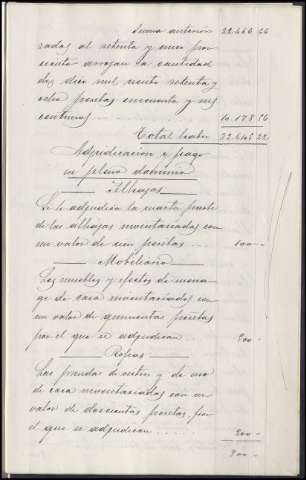 Suma anterior 22.466 66
radas al setenta y cinco por
ciento arrojan la cantidad
de diez mil ciento setenta y
ocho pesetas cincuenta y seis
centimos 10.178 56
Total haber 32.645 22
Adjudicacion y pago
en pleno dominio
Alhajas
Se le adjudica la cuarta parte
de las alhajas inventariadas con
un valor de cien pesetas 100 -
Mobiliario
Los muebles y efectos de mena-
ge de casa inventariados con
un valor de quinientas pesetas
por el que se adjudican 500 -
Ropas
Las prendas de vestir y de uso
de casa inventariadas con un
valor de doscientas pesetas por
el que se adjudican 200 -
800 -